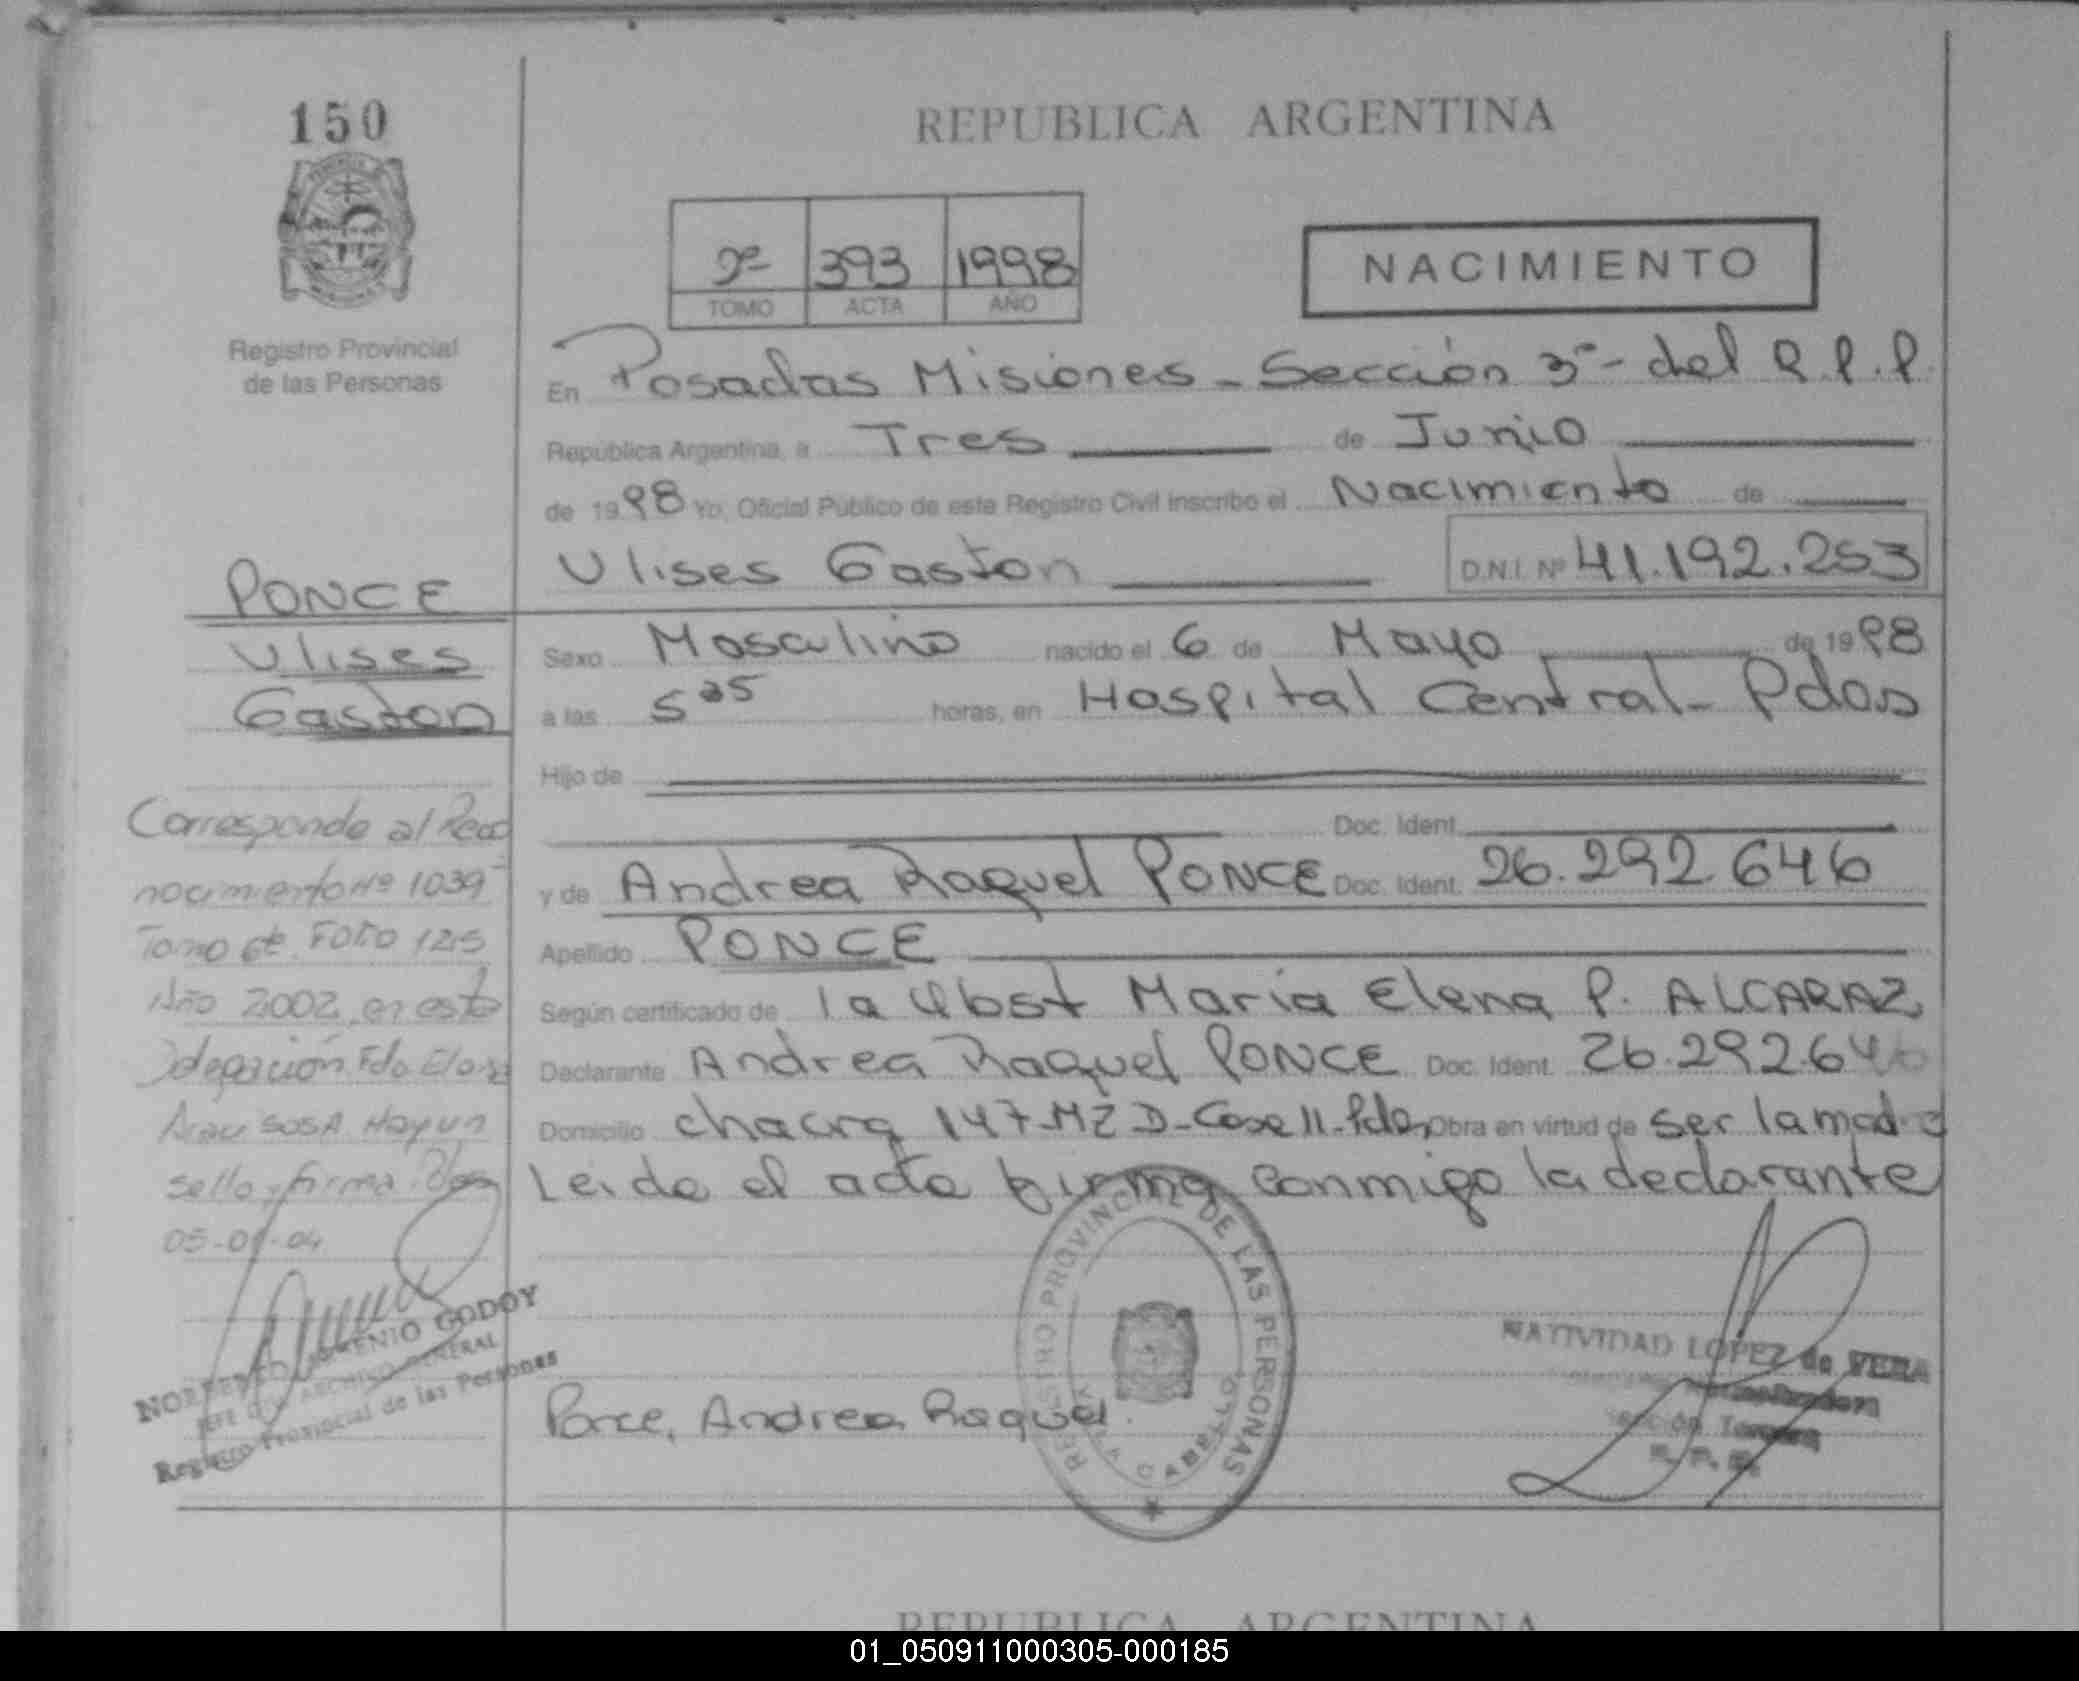 150
Registro Provincial
de las Personas
PONCE
Ulises
Gaston
Corresponde al Reco
nocimiento Nº 1039
Tomo 6º Folio 125
Año 2002, en esta
Delegación Fdo
SOSA Hay un
sello y firma
04
GODOY
ARCHIVO GENERAL
Registro Provincial de las Personas
REPUBLICA ARGENTINA
393 1998
TOMO ACTA AÑO
NACIMIENTO
En Posadas Misiones - Sección 3º - del R.P.P
República Argentina, a Tres de Junio
de 1998 Yo, Oficial Público de este Registro Civil inscribo el Nacimiento de
Ulises Gaston D.N.I. Nº 41.192.253
Sexo Masculino nacido el 6 de Mayo de 1998
a las horas, en Hospital Central - Pdas
Hijo de
Doc. Ident.
y de Andrea Raquel PONCE Doc. Ident. 26.292.646
Apellido PONCE
Según certificado de la Obst Maria Elena P. ALCARAZ
Declarante Andrea Raquel PONCE Doc. Ident. 26.292.646
Domicilio chacra 147-MZ D-Casa 11-Pdas Obra en virtud de ser la madre
Leida el acta firma conmigo la declarante
REGISTRO PROVINCIAL DE LAS PERSONAS
VILLA CABELLO
Ponce, Andrea Raquel.
NATIVIDAD LOPEZ de VERA
Sección Tercera
R. P. P.
REPUBLICA ARGENTINA
01_050911000305-000185